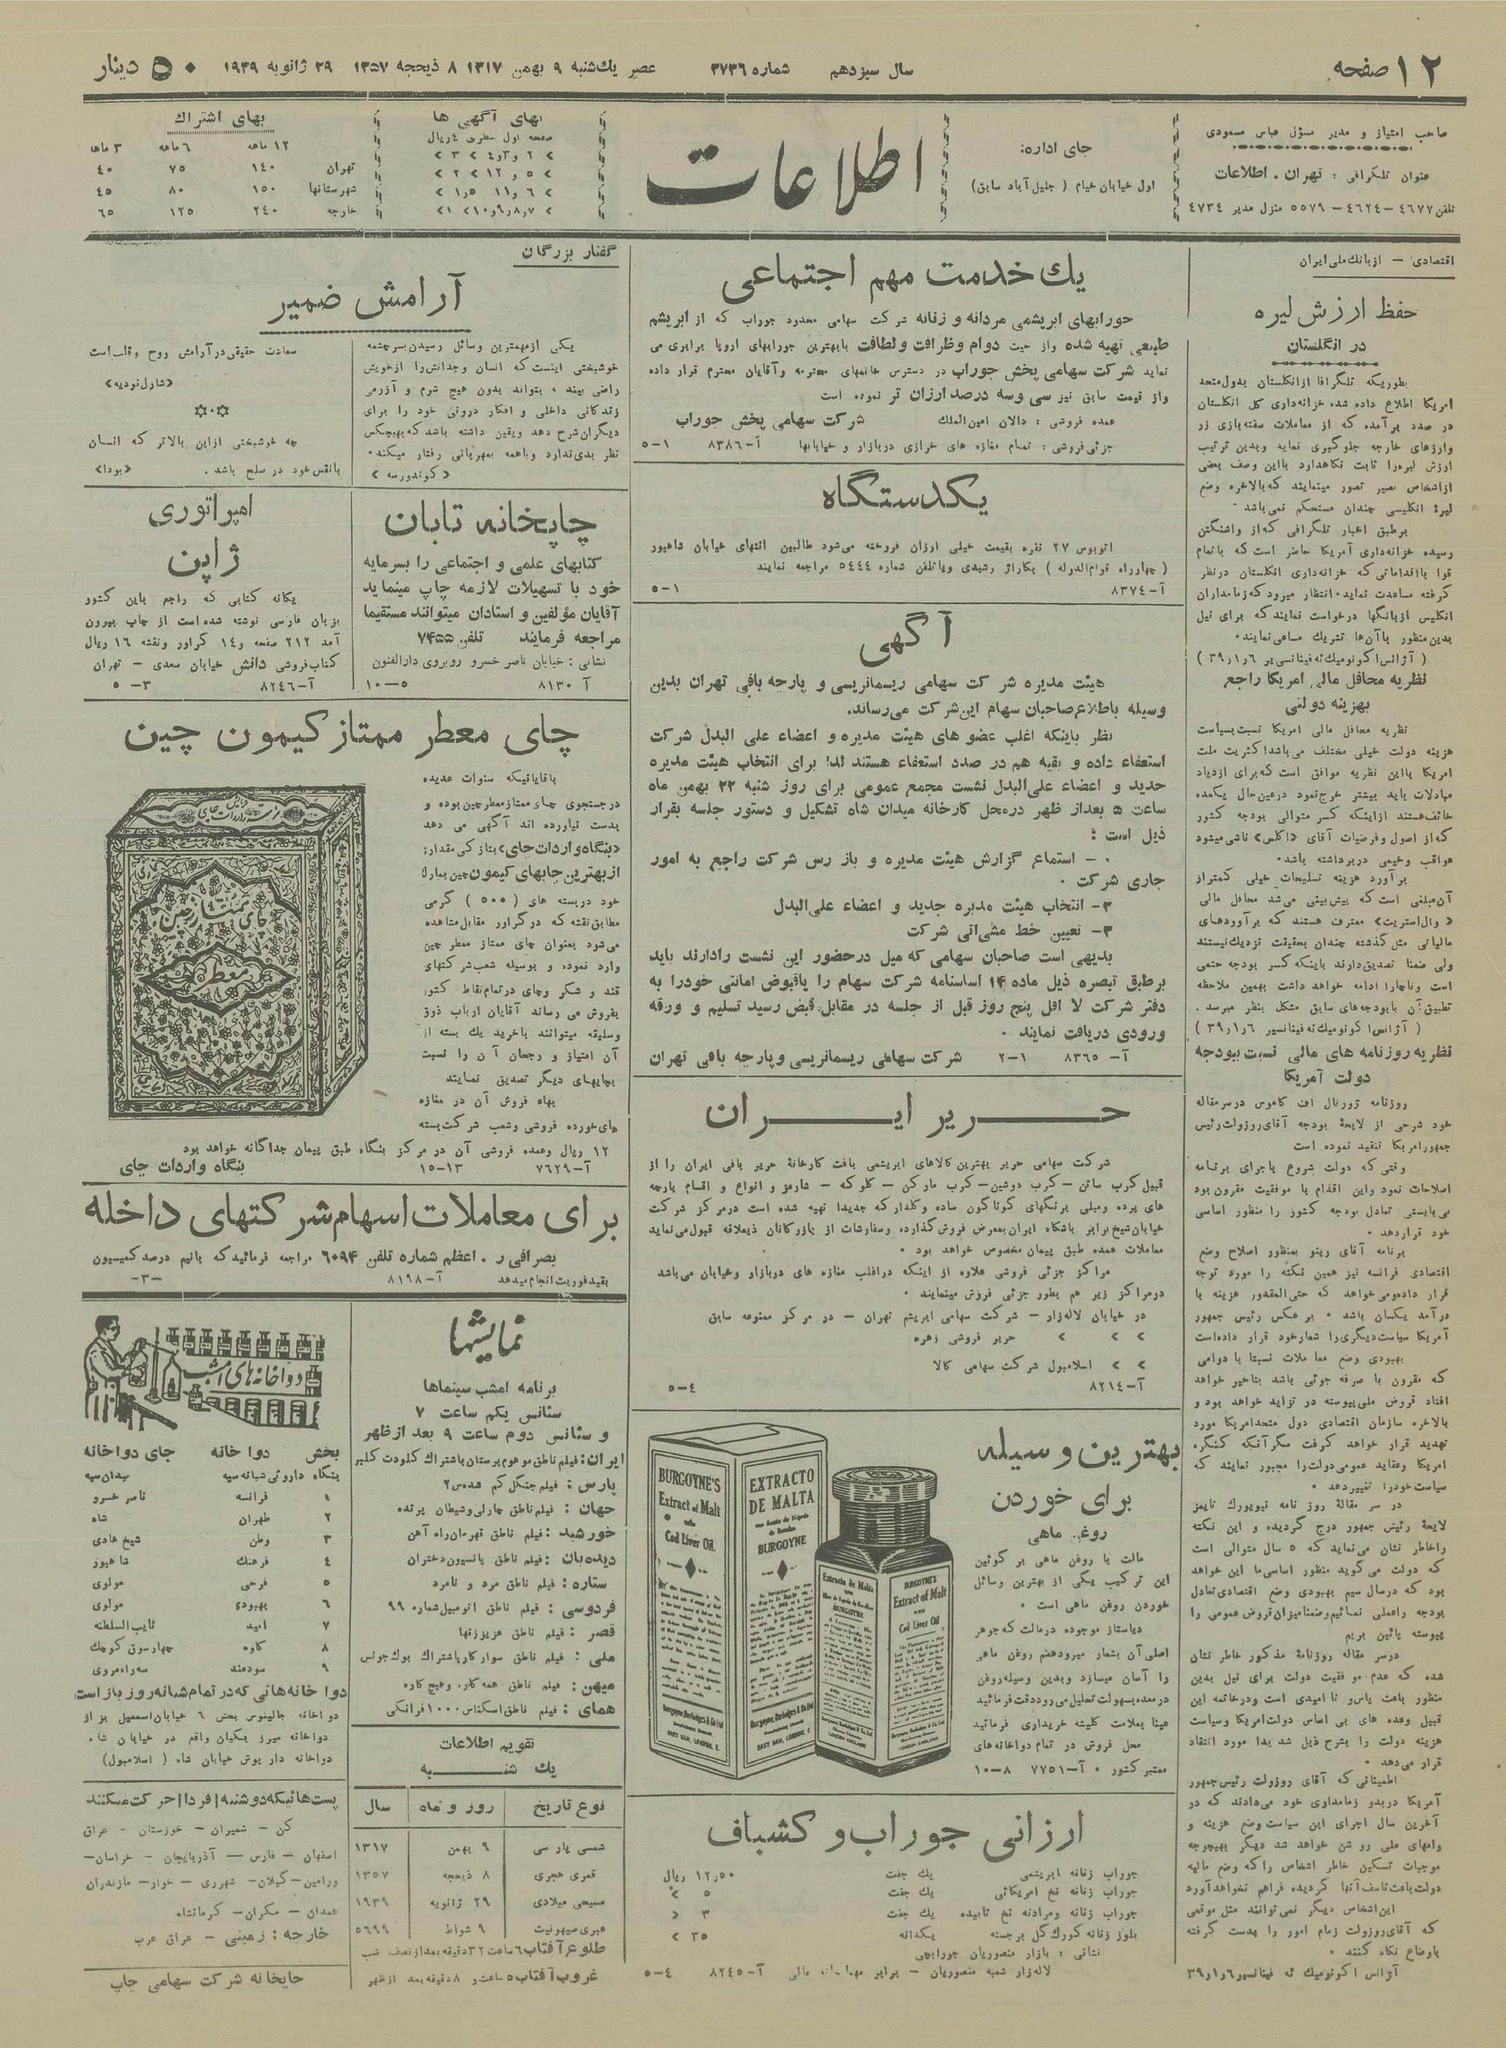 ۱۲ صفحه
سال سیزدهم
شماره ۳۷۳۶
عصر یك‌شنبه ۹ بهمن ۱۳۱۷ ۸ ذیحجه ۱۳۵۷ ۲۹ ژانویه ۱۹۳۹
۵۰ دینار
صاحب امتیاز و مدیر مسؤل عباس مسعودی
عنوان تلگرافی : تهران . اطلاعات
تلفن ۴۶۷۷ – ۴۶۲۴ – ۵۵۷۹ منزل مدیر ۴۷۳۴
جای اداره:
اول خیابان خیام ( جلیل آباد سابق )
اطلاعات
بهای آگهی ها
صفحه اول سطری ۴ ریال
بهای اشتراك
۱۲ ماهه ۶ ماهه ۳ ماهه
تهران ۱۴۰ ۷۵ ۴۰
شهرستانها ۱۵۰ ۸۰ ۴۵
خارجه ۲۴۰ ۱۲۵ ۶۵
اقتصادی – از بانك ملی ایران
حفظ ارزش لیره
در انگلستان
بطوریکه تلگرافا از انگلستان بدول متحد
امریکا اطلاع داده شده خزانه‌داری کل انگلستان
در صدد برآمده که از معاملات سفته‌بازی زر
وارزهای خارجه جلوگیری نماید وبدین ترتیب
ارزش لیره‌را ثابت نگاهدارد بااین وصف بعضی
از اشخاص بصیر تصور مینمایند که بالاخره وضع
لیرهٔ انگلیسی چندان مستحکم نمی‌باشد .
برطبق اخبار تلگرافی که از واشنگتن
رسیده خزانه‌داری آمریکا حاضر است که باتمام
قوا بااقداماتی که خزانه‌داری انگلستان درنظر
گرفته مساعدت نماید. انتظار میرود که زمامداران
انگلیس ازبانگها درخواست نمایند که برای نیل
بدین منظور باآن‌ها تشریك مساعی نمایند.
( آژانس اکونومیك ته فینانسیر ۳۹ر۱ر۶ )
نظریه محافل مالی امریکا راجع
بهزینه دولتی
نظریه محافل مالی امریکا نسبت بسیاست
هزینه دولت خیلی مختلف می‌باشد اکثریت ملت
امریکا بااین نظریه موافق است که برای ازدیاد
مبادلات باید بیشتر خرج نمود درعین‌حال یکعده
خائف هستند ازاینکه کسر متوالی بودجه کشور
که از اصول وفرضیات آقای «اکلس» ناشی میشود
عواقب وخیمی دربرداشته باشد.
برآورد هزینه تسلیحات خیلی کمتر از
آن مبلغی است که پیش‌بینی می‌شد محافل مالی
«وال استریت» معترف هستند که برآوردهای
مالیاتی مثل گذشته چندان بحقیقت نزدیك نیستند
ولی ضمنا تصدیق دارند باینکه کسر بودجه حتمی
است وناچارا ادامه خواهد داشت بهمین ملاحظه
تطبیق آن بابودجه‌های سابق مشکل بنظر میرسد .
( آژانس اکونومیك ته فینانسیر ۳۹ر۱ر۶ )
نظریه روزنامه های مالی نسبت ببودجه
دولت آمریکا
روزنامه ژورنال اف کامرس درسرمقاله
خود شرحی از لایحهٔ بودجه آقای روزولت رئیس
جمهور امریکا تنقید نموده است
وقتی که دولت شروع باجرای برنامه
اصلاحات نمود واین اقدام با موفقیت مقرون بود
می‌بایستی تعادل بودجه کشور را منظور اساسی
خود قراردهد .
برنامه آقای رینو بمنظور اصلاح وضع
اقتصادی فرانسه نیز همین نکته را مورد توجه
قرار داده‌ومی‌خواهد که حتی‌المقدور هزینه با
درآمد یکسان باشد . برعکس رئیس جمهور
آمریکا سیاست دیگری‌را شعارخود قرار داده‌است
بهبودی وضع معاملات نسبتا با دوامی
که مقرون با صرفه جوئی باشد بتاخیر خواهد
افتاد قروض ملی پیوسته در تزاید خواهد بود و
بالاخره سازمان اقتصادی دول متحدامریکا مورد
تهدید قرار خواهد گرفت مگر آنکه کنگره
امریکا وعقاید عمومی دولت‌را مجبور نمایند که
سیاست خودرا تغییردهد .
در سر مقالهٔ روزنامه نیویورك تایمز
لایحهٔ رئیس جمهور درج گردیده و این نکته
راخاطر نشان می‌نماید که ۵ سال متوالی است
که دولت می‌گوید منظور اساسی ما این خواهد
بود که درسال سیم بهبودی وضع اقتصادی تعادل
بودجه راعملی نمائیم وضمنا میزان قروض عمومی را
پیوسته پائین بریم
درسر مقاله روزنامهٔ مذکور خاطر نشان
شده که عدم موفقیت دولت برای نیل بدین
منظور باعث یاس‌و ناامیدی است ودرخاتمه این
قبیل وعده های بی اساس دولت امریکا وسیاست
هزینه دولت را بشرح ذیل شدیدا مورد انتقاد
قرار می‌دهد .
اطمینانی که آقای روزولت رئیس‌جمهور
آمریکا دربدو زمامداری خود می‌دادند که در
آخرین سال اجرای این سیاست وضع هزینه و
وامهای ملی رو شن خواهد شد دیگر بهیچوجه
موجبات تسکین خاطر اشخاص راکه وضع مالیه
دولت باعث تاسف آنها گردیده فراهم نخواهدآورد
این اشخاص دیگر نمی توانند مثل موقعی
که آقای روزولت زمام امور را بدست گرفته
باوضاع نگاه کنند .
آژانس اکونومیك ته فینانسیر ۳۹ر۱ر۶
یك خدمت مهم اجتماعی
جورابهای ابریشمی مردانه و زنانه شرکت سهامی محدود جوراب که از ابریشم
طبیعی تهیه شده واز حیث دوام وظرافت ولطافت بابهترین جورابهای اروپا برابری می
نماید شرکت سهامی پخش جوراب در دسترس خانمهای محترمه وآقایان محترم قرار داده
واز قیمت سابق نیز سی وسه درصد ارزان تر نموده است
عمده فروشی : دالان امین‌الملك
شرکت سهامی پخش جوراب
جزئی‌فروشی : تمام مغازه های خرازی دربازار و خیابانها
آ–۸۳۸۶
۱–۵
یکدستگاه
اتوبوس ۲۷ نفره بقیمت خیلی ارزان فروخته می‌شود طالبین انتهای خیابان داهپور
( چهارراه قوام‌الدوله ) بگاراژ رشیدی ویاتلفن شماره ۵۴۴۴ مراجعه نمایند
آ–۸۳۷۴
۱–۵
آگهی
هیئت مدیره شرکت سهامی ریسمانریسی و پارچه بافی تهران بدین
وسیله باطلاع صاحبان سهام این شرکت می‌رساند.
نظر باینکه اغلب عضو های هیئت مدیره و اعضاء علی البدل شرکت
استعفاء داده و بقیه هم در صدد استعفاء هستند لذا برای انتخاب هیئت مدیره
جدید و اعضاء علی‌البدل نشست مجمع عمومی برای روز شنبه ۲۲ بهمن ماه
ساعت ۵ بعداز ظهر درمحل کارخانه میدان شاه تشکیل و دستور جلسه بقرار
ذیل است :
– استماع گزارش هیئت مدیره و بازرس شرکت راجع به امور
جاری شرکت .
۲– انتخاب هیئت مدیره جدید و اعضاء علی‌البدل
۳– تعیین خط مشی‌آتی شرکت
بدیهی است صاحبان سهامی که میل درحضور این نشست رادارند باید
برطبق تبصره ذیل ماده ۱۴ اساسنامه شرکت سهام را یاقبوض امانتی خودرا به
دفتر شرکت لا اقل پنج روز قبل از جلسه در مقابل قبض رسید تسلیم و ورقه
ورودی دریافت نمایند .
آ– ۸۳۶۵
۱–۲
شرکت سهامی ریسمانریسی وپارچه بافی تهران
حریر ایران
شرکت سهامی حریر بهترین کالاهای ابریشمی بافت کارخانهٔ حریر بافی ایران را از
قبیل کرپ ساتن – کرپ دوشین – کرپ مارکن – کلوکه – فارمز و انواع و اقسام پارچه
های پرده ومبلی برنگهای گوناگون ساده وگلدار که جدیدا تهیه شده است درمرکز شرکت
خیابان شیخ برابر باشگاه ایران بمعرض فروش گذارده وسفارشات از بازرگانان ذیعلاقه قبول می‌نماید
معاملات عمده طبق پیمان مخصوص خواهد بود .
مراکز جزئی فروشی علاوه از اینکه دراغلب مغازه های دربازار وخیابان می‌باشد
درمراکز زیر هم بطور جزئی فروش مینمایند .
در خیابان لاله‌زار – شرکت سهامی ابریشم تهران – در مرکز ممنوعه سابق
» » » حریر فروشی زهره
» » اسلامبول شرکت سهامی کالا
آ–۸۲۱۴
۴–۵
بهترین وسیله
برای خوردن
روغن ماهی
مالت با روغن ماهی بر گوئین
این ترکیب یکی از بهترین وسائل
خوردن روغن ماهی است .
دیاستاز موجوده درمالت که جوهر
اصلی آن بشمار میرودهضم روغن ماهی
را آسان میسازد وبدین وسیله روغن
درمعده بسهولت تحلیل می‌رود دقت فرمائید
عینا بعلامت کلیشه خریداری فرمائید
محل فروش در تمام دواخانه‌های
معتبر کشور . آ–۷۷۵۱ ۸–۱۰
BURGOYNE'S
Extract of Malt
Cod Liver Oil.
EXTRACTO
DE MALTA
BURGOYNE
Extracto de Malta
BURGOYNE
BURGOYNE'S
Extract of Malt
Cod Liver Oil
Burgoyne, Burbidges & Co Ltd
EAST HAM, LONDON, E.
ارزانی جوراب و کشباف
جوراب زنانه ابریشمی یك جفت ۱۲٫۵۰ ریال
جوراب زنانه نخ امریکائی یك جفت ۵ »
جوراب زنانه ومردانه نخ تابیده یك جفت ۳ »
بلوز زنانه کورك گل برجسته یکدانه ۳۵ »
نشانی : بازار منصوریان جورابچی
لاله‌زار شعبه منصوریان – برابر مهمانخانه مالی آ–۸۲۴۵ ۴–۵
گفتار بزرگان
آرامش ضمیر
یکی ازمهمترین وسائل رسیدن بسرچشمه
خوشبختی اینست که انسان وجدانش‌را ازخویش
راضی بیند ، بتواند بدون هیچ شرم و آزرمی
زندگانی داخلی و افکار درونی خود را برای
دیگران شرح دهد ویقین داشته باشد که بهیچکس
نظر بدی‌ندارد وباهمه بمهربانی رفتار میکند.
«کوندورسه»
سعادت حقیقی درآرامش روح وقلب است
«شارل نودیه»
چه خوشبختی ازاین بالاتر که انسان
بانفس خود در صلح باشد .
«بودا»
چاپخانه تابان
کتابهای علمی و اجتماعی را بسرمایه
خود با تسهیلات لازمه چاپ مینماید
آقایان مؤلفین و استادان میتوانند مستقیما
مراجعه فرمایند تلفن ۷۴۵۵
نشانی : خیابان ناصر خسرو روبروی دارالفنون
آ ۸۱۳۰
۵–۱۰
امپراتوری
ژاپن
یگانه کتابی که راجع باین کشور
بزبان فارسی نوشته شده است از چاپ بیرون
آمد ۲۱۲ صفحه و۱۴ گراور ونقشه ۱۶ ریال
کتاب‌فروشی دانش خیابان سعدی – تهران
آ–۸۲۴۶
۳–۵
چای معطر ممتاز کیمون چین
بآقایانیکه سنوات عدیده
درجستجوی چای ممتاز معطر چین بوده و
بدست نیاورده اند آگهی می دهد
«بنگاه واردات چای» بتازگی مقداری
ازبهترین چایهای کیمون چین بمارك
خود دربسته های (۵۰۰) گرمی
مطابق نقشه که درگراور مقابل مشاهده
می‌شود بعنوان چای ممتاز معطر چین
وارد نموده و بوسیله شعب شرکتهای
قند و شکر وچای درتمام نقاط کشور
بفروش می رساند آقایان ارباب ذوق
وسلیقه میتوانند باخرید یك بسته از
آن امتیاز و رجحان آن را نسبت
بچایهای دیگر تصدیق نمایند
بهاء فروش آن در مغازه
های خورده فروشی وشعب شرکت بسته
۱۲ ریال وعمده فروشی آن در مرکز بنگاه طبق پیمان جداگانه خواهد بود
آ–۷۶۲۹
۱۳–۱۵
بنگاه واردات چای
چای ممتاز چین
معطر
برای معاملات اسهام شرکتهای داخله
بصرافی ر . اعظم شماره تلفن ۶۰۹۴ مراجعه فرمائید که بانیم درصد کمیسیون
بقید فوریت انجام میدهد
آ–۸۱۹۸
–۳–
نمایشها
برنامه امشب سینماها
سئانس یکم ساعت ۷
و سئانس دوم ساعت ۹ بعد از ظهر
ایران : فیلم ناطق موهوم پرستان باشتراك کلودت کلبر
پارس : فیلم جنگل گم شده س۲
جهان : فیلم ناطق چارلی وشیطان پرنده
خورشید : فیلم ناطق قهرمان راه آهن
دیده‌بان : فیلم ناطق پانسیون دختران
ستاره : فیلم ناطق مرد و نامرد
فردوسی : فیلم ناطق اتومبیل شماره ۹۹
قصر : فیلم ناطق عزیززنها
ملی : فیلم ناطق سوار کار باشتراك بوك جونس
میهن : فیلم ناطق همه کاره وهیچ کاره
همای : فیلم ناطق اسکناس ۱۰۰۰ فرانکی
تقویم اطلاعات
یك شنبه
نوع تاریخ روز و ماه سال
شمسی پارسی ۹ بهمن ۱۳۱۷
قمری هجری ۸ ذیحجه ۱۳۵۷
مسیحی میلادی ۲۹ ژانویه ۱۹۳۹
عبری صیهونیت ۹ شواط ۵۶۹۹
طلوع آفتاب ۶ ساعت ۳۲ دقیقه بعد از نصف شب
غروب آفتاب ۵ ساعت و ۸ دقیقه بعد ازظهر
دواخانه‌های امشب
بخش دوا خانه جای دواخانه
بنگاه داروئی شبانه سپه میدان سپه
۱ فرانسه ناصر خسرو
۲ طهران شاه
۳ وطن شیخ هادی
۴ فرهنك شاهپور
۵ فرحی مولوی
۶ بهبودی مولوی
۷ امید نایب السلطنه
۸ کاوه چهارسوق کوچك
۹ سودمند سه راه مروی
دوا خانه هائی که در تمام شبانه روز باز است
دواخانه جالینوس بخش ۶ خیابان اسمعیل بزاز
دواخانه میرزیکیان واقع در خیابان شاه
دواخانه داریوش خیابان شاه ( اسلامبول)
پست هائیکه دوشنبه (فردا) حرکت میکنند
کن – شمیران – خوزستان – عراق
اصفهان – فارس – آذربایجان – خراسان –
ورامین – گیلان – شهرری – خوار – مازندران
همدان – مکران – کرمانشاه
خارجه : زمینی – عراق عرب
چاپخانه شرکت سهامی چاپ